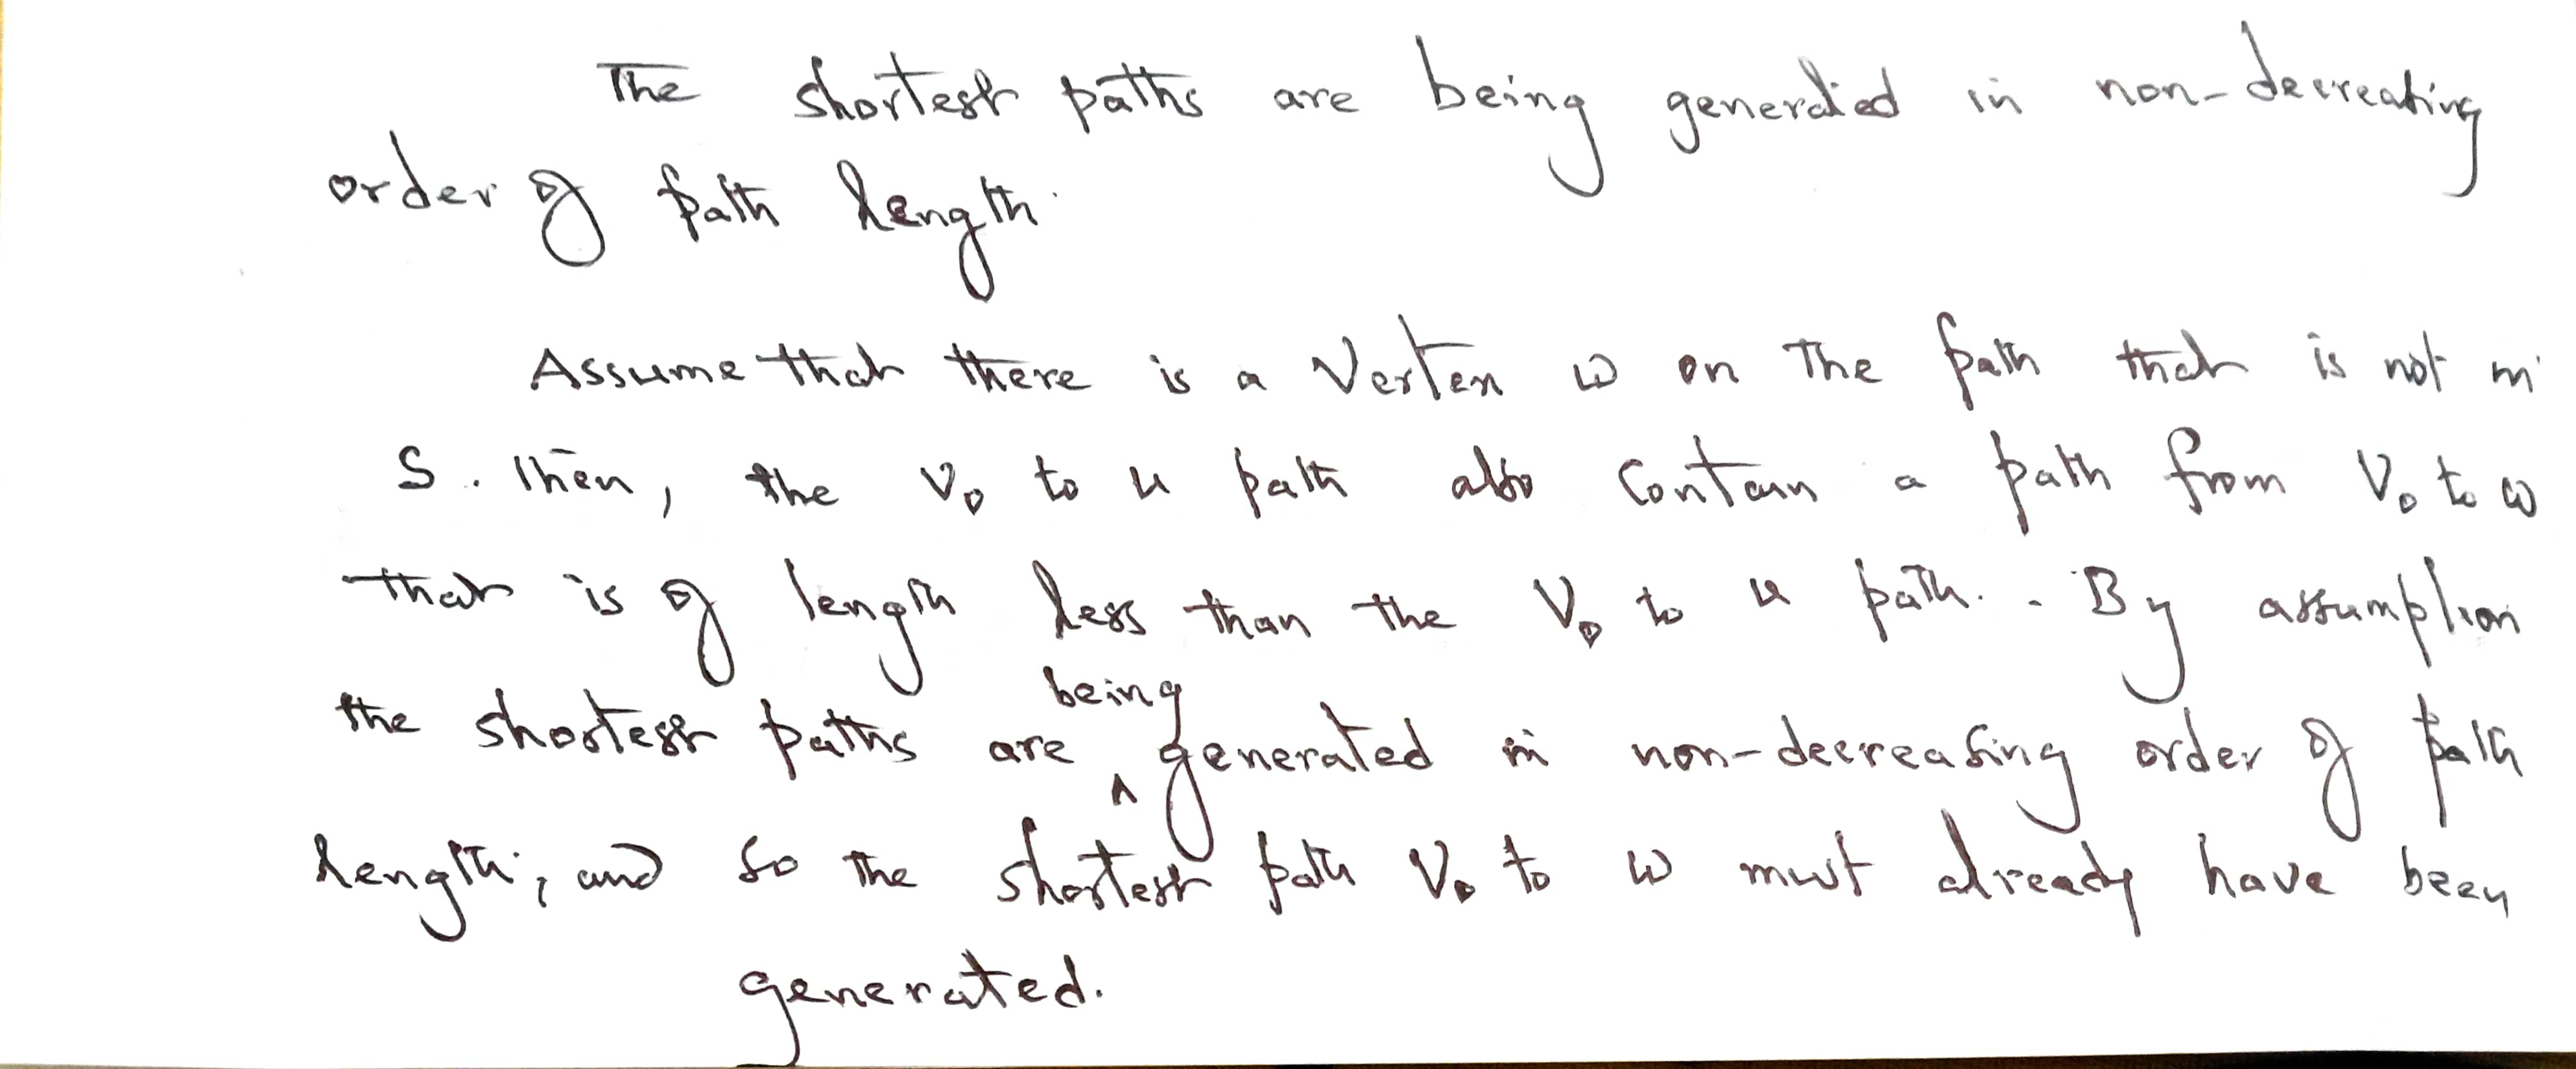 The shortest paths are being generated in non-decreasing
order of path length.
Assume that there is a Vertex w on the path that is not in
S. Then, the V₀ to u path also contain a path from V₀ to w
that is of length less than the V₀ to u path. . By assumption
being
the shortest paths are ^ generated in non-decreasing order of path
length; and so the shortest path V₀ to w must already have been
generated.